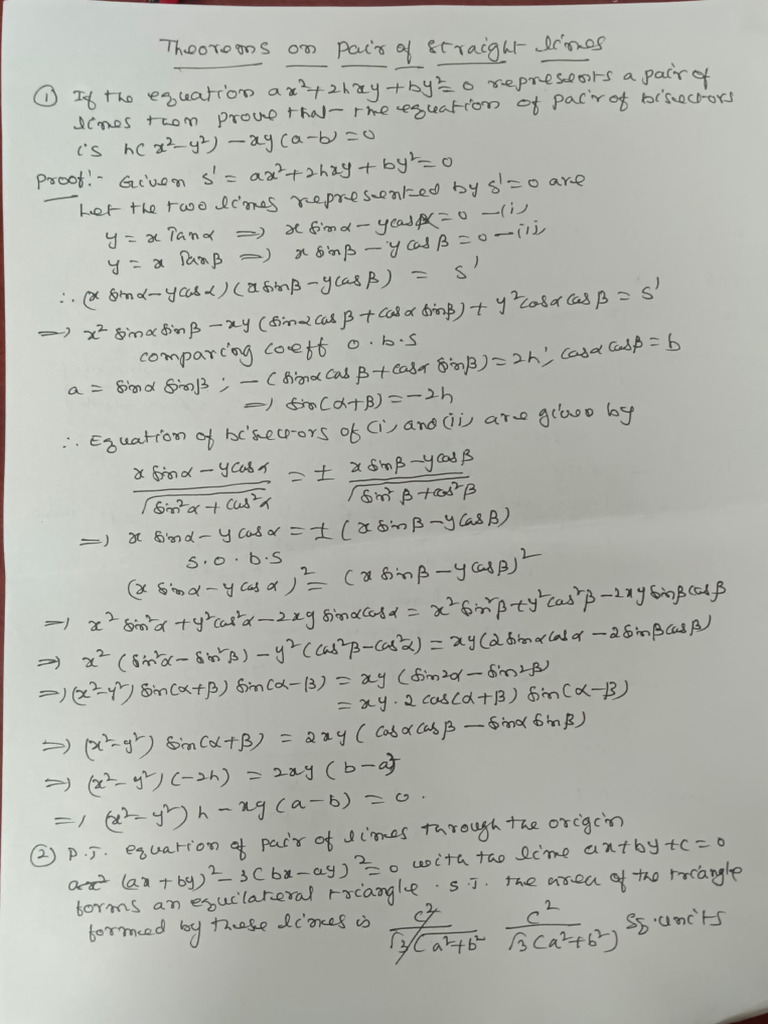 Theorems on pair of straight lines
① If the equation ax²+2hxy+by²=0 represents a pair of
lines then prove that the equation of pair of bisectors
is h(x²-y²)-xy(a-b)=0
Proof:- Given S' = ax²+2hxy+by²=0
Let the two lines represented by S'=0 are
y = x Tanα ⇒ x sinα - ycosα = 0 -(i)
y = x Tanβ ⇒ x sinβ - y cosβ = 0 -(ii)
∴ (x sinα-ycosα)(xsinβ-ycosβ) = S'
⇒ x² sinα sinβ - xy (sinα cosβ + cosα sinβ) + y² cosα cosβ = S'
comparing coeff o.b.s
a = sinα sinβ ; -(sinα cosβ + cosα sinβ) = 2h ; cosα cosβ = b
⇒ sin(α+β) = -2h
∴ Equation of bisectors of (i) and (ii) are given by
(x sinα - ycosα)/√(sin²α + cos²α) = ± (x sinβ - ycosβ)/√(sin²β + cos²β)
⇒ x sinα - y cosα = ± (x sinβ - y cosβ)
S.O.b.S
(x sinα - y cosα)² = (x sinβ - y cosβ)²
⇒ x² sin²α + y² cos²α - 2xy sinα cosα = x² sin²β + y² cos²β - 2xy sinβ cosβ
⇒ x² (sin²α - sin²β) - y² (cos²β - cos²α) = xy(2 sinα cosα - 2 sinβ cosβ)
⇒ (x²-y²) sin(α+β) sin(α-β) = xy (sin2α - sin2β)
= xy. 2 cos(α+β) sin(α-β)
⇒ (x²-y²) sin(α+β) = 2xy (cosα cosβ - sinα sinβ)
⇒ (x²-y²) (-2h) = 2xy (b-a)
⇒ (x²-y²) h - xy (a-b) = 0.
② P.T. equation of pair of lines through the origin
(ax+by)² - 3(bx-ay)² = 0 with the line ax+by+c=0
forms an equilateral triangle. S.T. the area of the triangle
formed by these lines is c²/√3(a²+b²) sq.units